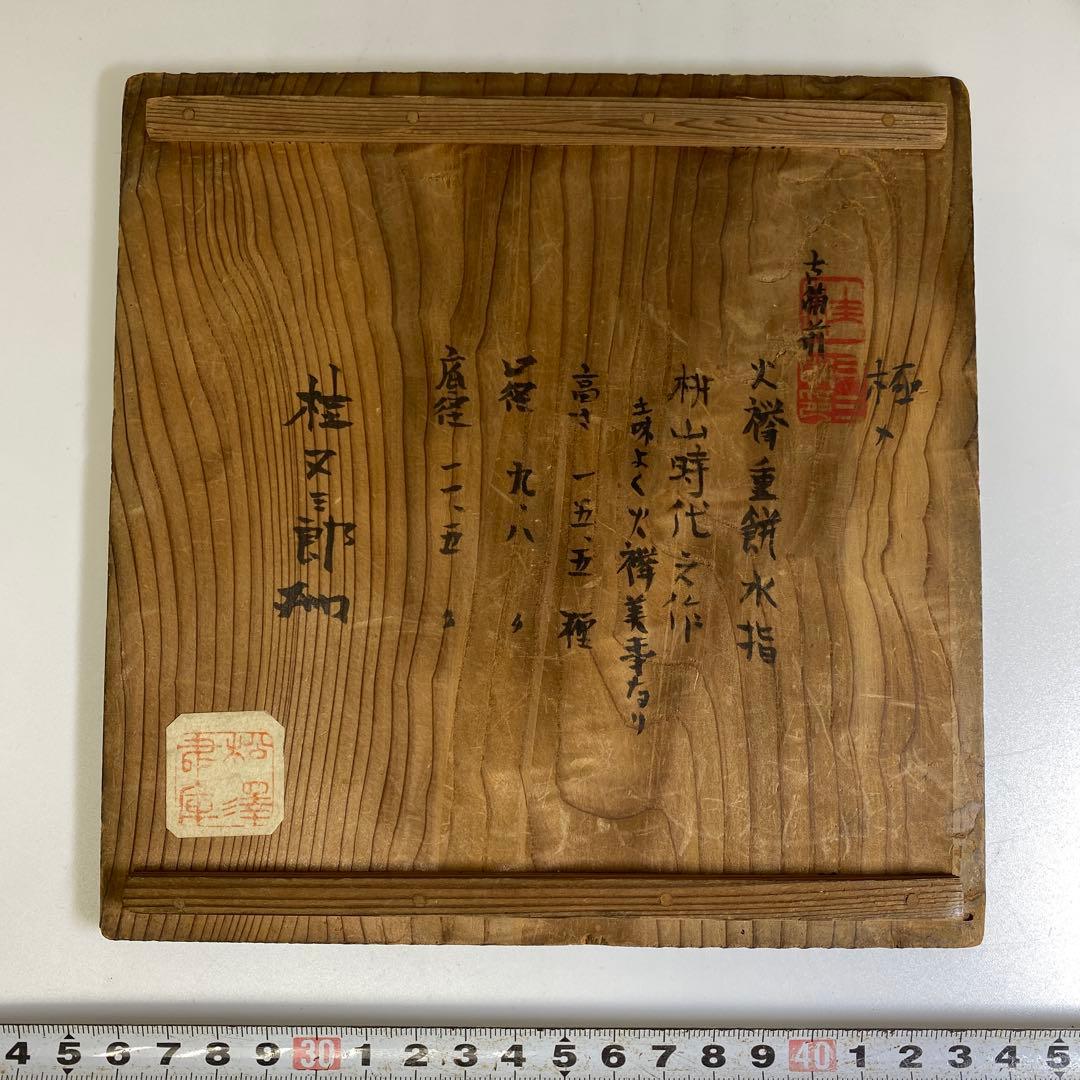 極メ
古備前
火襷重餅水指
桃山時代之作
土味よく火襷美事なり
高さ 一五、五 糎
口径 九、八 〃
底径 一一、五 〃
桂又三郎
松澤
書庫
4 5 6 7 8 9 30 1 2 3 4 5 6 7 8 9 40 1 2 3 4 5